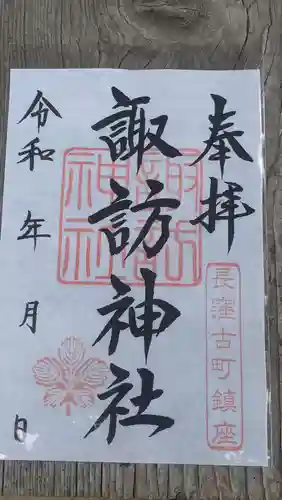 奉拝
長窪古町鎮座
諏訪神社
諏訪神社
令和 年 月 日